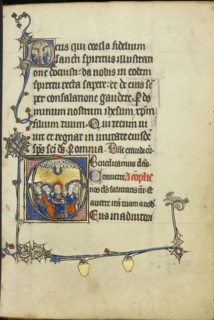 eus qui corda fidelium
sancti spiritus illustrati
one docuisti: da nobis in eodem
spiritu recta sapere: et de eius se
per consolatione gaudere. P do
minum nostrum ihesum xpm
filium tuum. Qui tecum ui
uit et regnat in unitate eiusdē
sps sci ds. P omnia.
Benedicamus dño.
Conuerte
nos ds salutaris nr. et
auerte iram tuam a nob.
Eus in adiutori